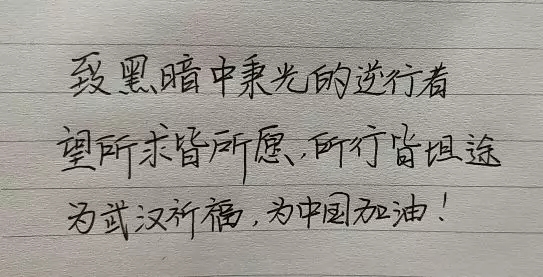 致黑暗中秉光的逆行者
望所求皆所愿,所行皆坦途
为武汉祈福,为中国加油!